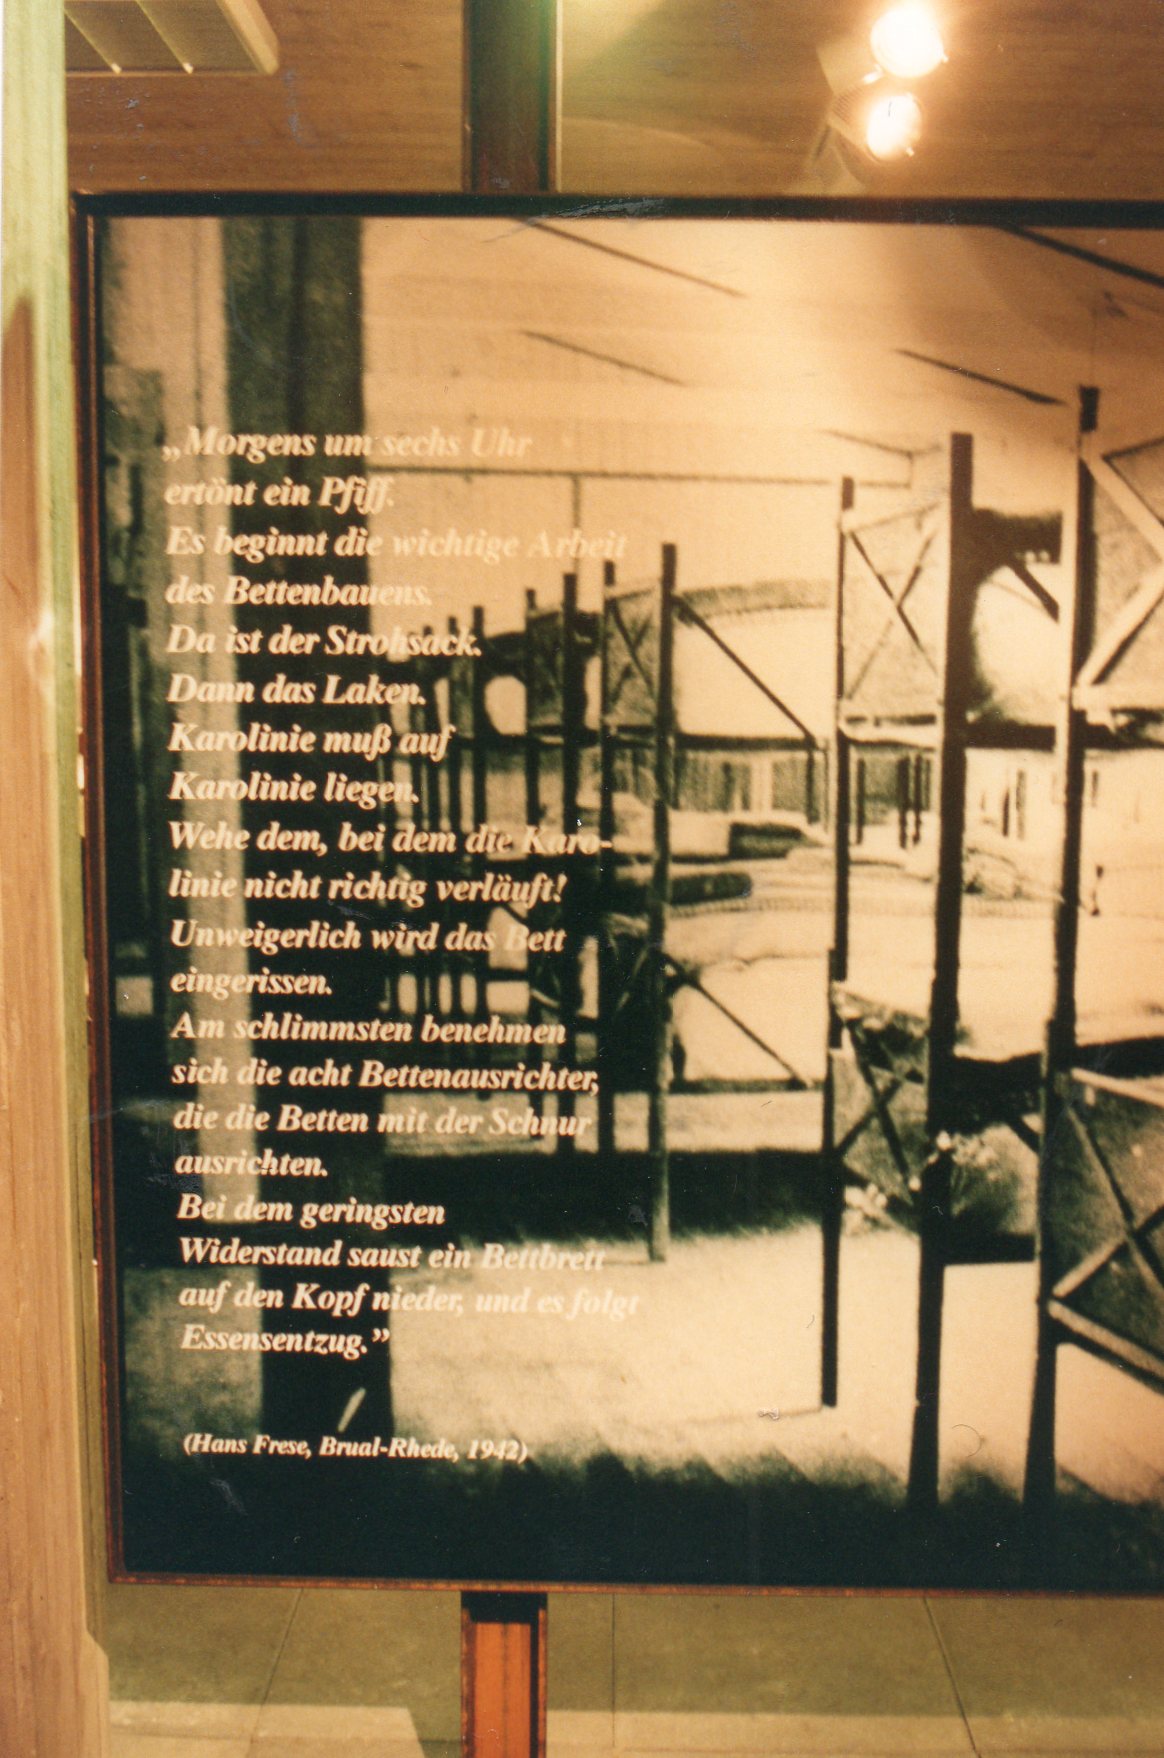 „Morgens um sechs Uhr
ertönt ein Pfiff.
Es beginnt die wichtige Arbeit
des Bettenbauens.
Da ist der Strohsack.
Dann das Laken.
Karolinie muß auf
Karolinie liegen.
Wehe dem, bei dem die Karo-
linie nicht richtig verläuft!
Unweigerlich wird das Bett
eingerissen.
Am schlimmsten benehmen
sich die acht Bettenausrichter,
die die Betten mit der Schnur
ausrichten.
Bei dem geringsten
Widerstand saust ein Bettbrett
auf den Kopf nieder, und es folgt
Essensentzug.”
(Hans Frese, Brual-Rhede, 1942)